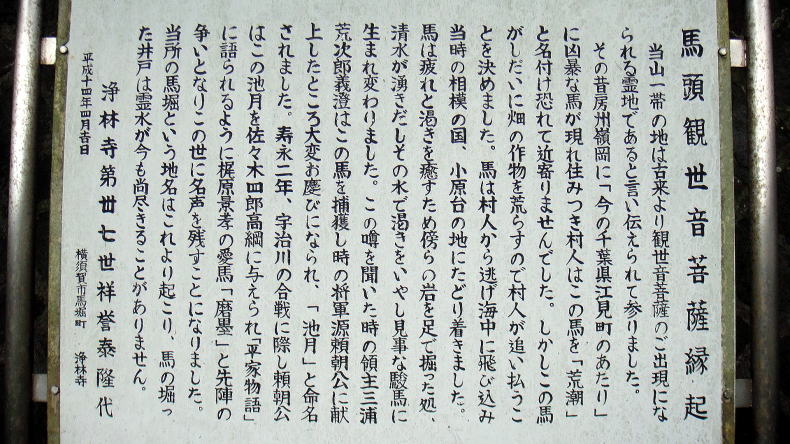 馬頭観世音菩薩縁起
当山一帯の地は古来より観世音菩薩のご出現にな
られる霊地であると言い伝えられて参りました。
その昔房州嶺岡に「今の千葉県江見町のあたり」
に凶暴な馬が現れ住みつき村人はこの馬を「荒潮」
と名付け恐れて近寄りませんでした。しかしこの馬
がしだいに畑の作物を荒らすので村人が追い払うこ
とを決めました。馬は村人から逃げ海中に飛び込み
当時の相模の国、小原台の地にたどり着きました。
馬は疲れと渇きを癒すため傍らの岩を足で掘った処、
清水が湧きだしその水で渇きをいやし見事な駿馬に
生まれ変わりました。この噂を聞いた時の領主三浦
荒次郎義澄はこの馬を捕獲し時の将軍源頼朝公に献
上したところ大変お慶びになられ、「池月」と命名
されました。寿永二年、宇治川の合戦に際し頼朝公
はこの池月を佐々木四郎高綱に与えられ「平家物語」
に語られるように梶原景孝の愛馬「磨墨」と先陣の
争いとなりこの世に名声を残すことになりました。
当所の馬堀という地名はこれより起こり、馬の堀っ
た井戸は霊水が今も尚尽きることがありません。
浄林寺第丗七世祥誉泰隆代
平成十四年四月吉日
横須賀市馬堀町 浄林寺